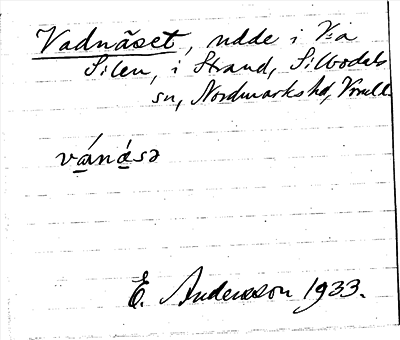 Vadnäset, udde i V:a
Silen, i Strand, Silbodals
sn, Nordmarks hd, Vrml.
vánásə
E. Andersson 1933.